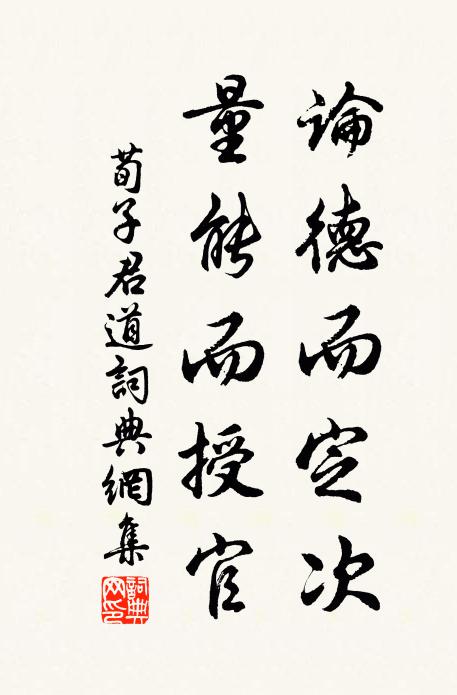 論德而定次
量能而授官
荀子君道詞典網集
詞典网印